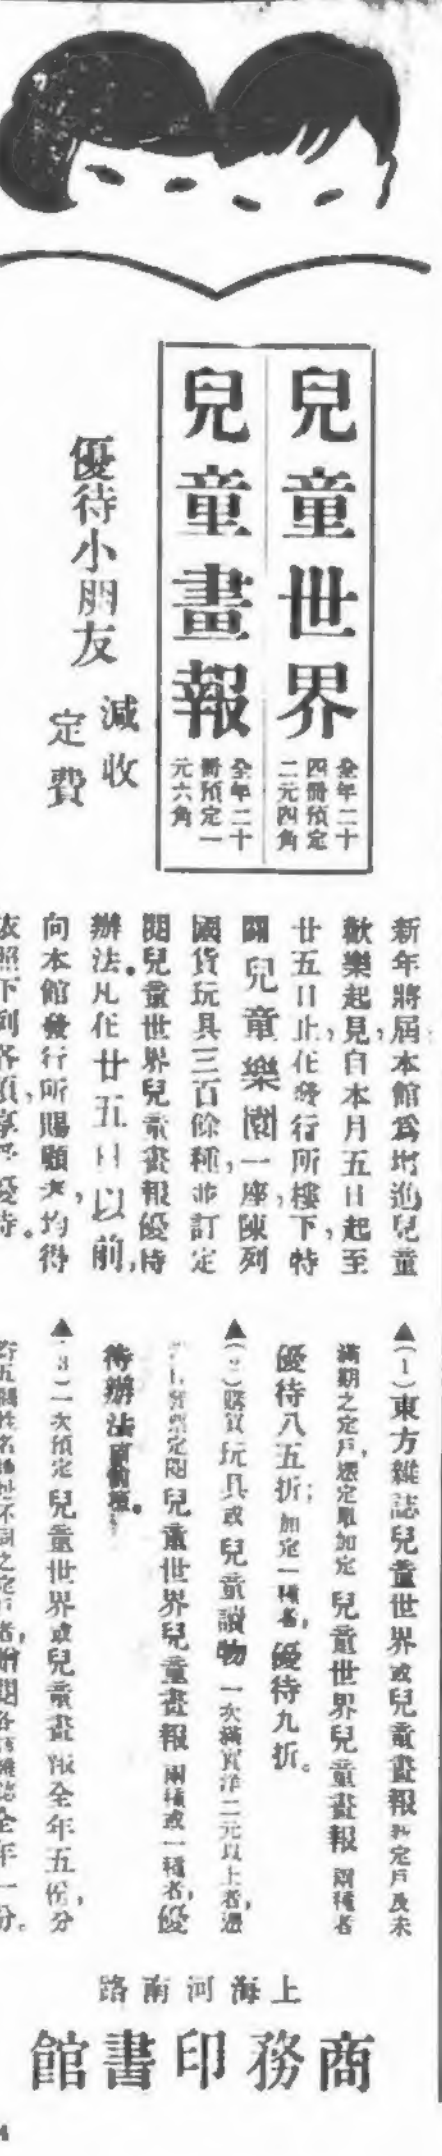 兒童世界
全年二十
四冊預定
二元四角
兒童畫報
全年二十
冊預定一
元六角
優待小朋友
減收
定費
新年將屆本館爲增進兒童
歡樂起見,自本月五日起至
廿五日止,在發行所樓下,特
闢兒童樂園一座,陳列
國貨玩具三百餘種,並訂定
閱兒童世界兒童畫報優待
辦法。凡在廿五日以前,
向本館發行所賜顧者,均得
依照下列各項,享受優待。
▲(1)東方雜誌兒童世界或兒童畫報舊定戶及未
滿期之定戶,憑定單加定兒童世界兒童畫報兩種者
優待八五折;加定一種者,優待九折。
▲(2)購買玩具或兒童讀物一次滿實洋二元以上者,憑
定閱兒童世界兒童畫報兩種或一種者,優
待辦法
▲(3)一次預定兒童世界或兒童畫報全年五份,分
寄五個姓名地址不同之定戶者,贈閱各該雜誌全年一分。
上海河南路
商務印書館